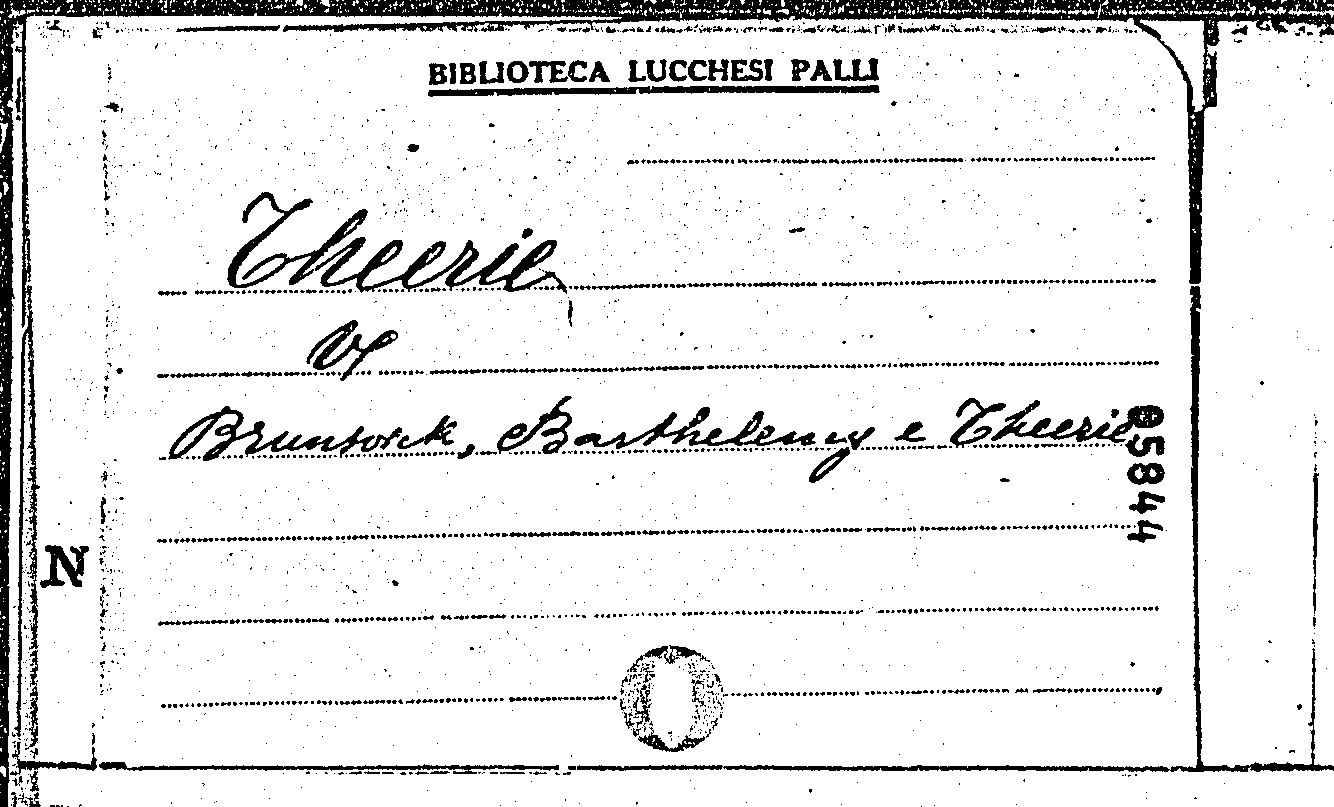 BIBLIOTECA LUCCHESI PALLI
Theerie
V
Brunswick, Barthelemy e Theerie
05844
N